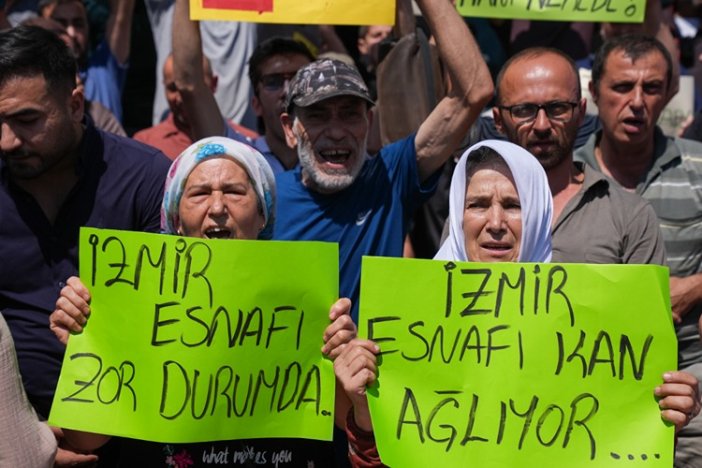 NEREDE?
İZMİR
ESNAFI
ZOR DURUMDA.
İZMİR
ESNAFI KAN
AĞLIYOR....
what makes you